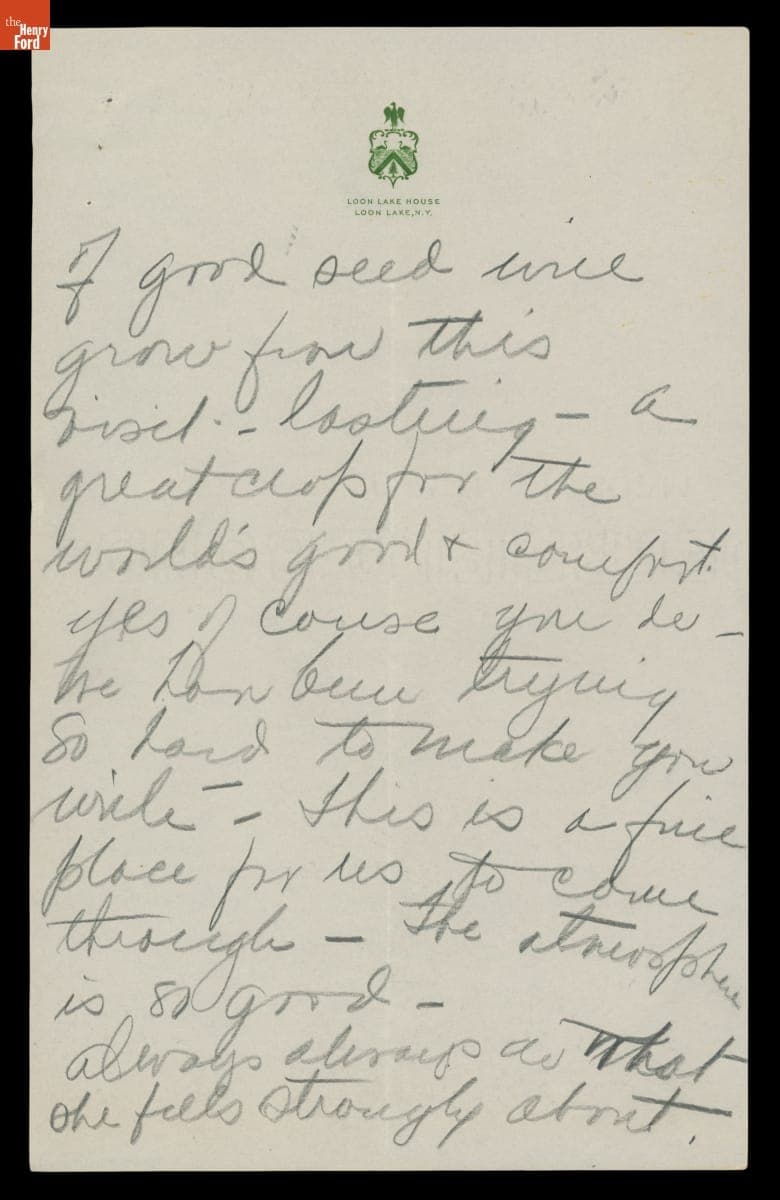 the
Henry
Ford
LOON LAKE HOUSE
LOON LAKE, N.Y.
If good seed will
grow from this
visit. - lasting - a
great crop for the
world's good & comfort.
yes of course you do -
We have been trying
so hard to make you
write - - this is a fine
place for us to come
through - The atmosphere
is so good -
always always do what
she feels strongly about.